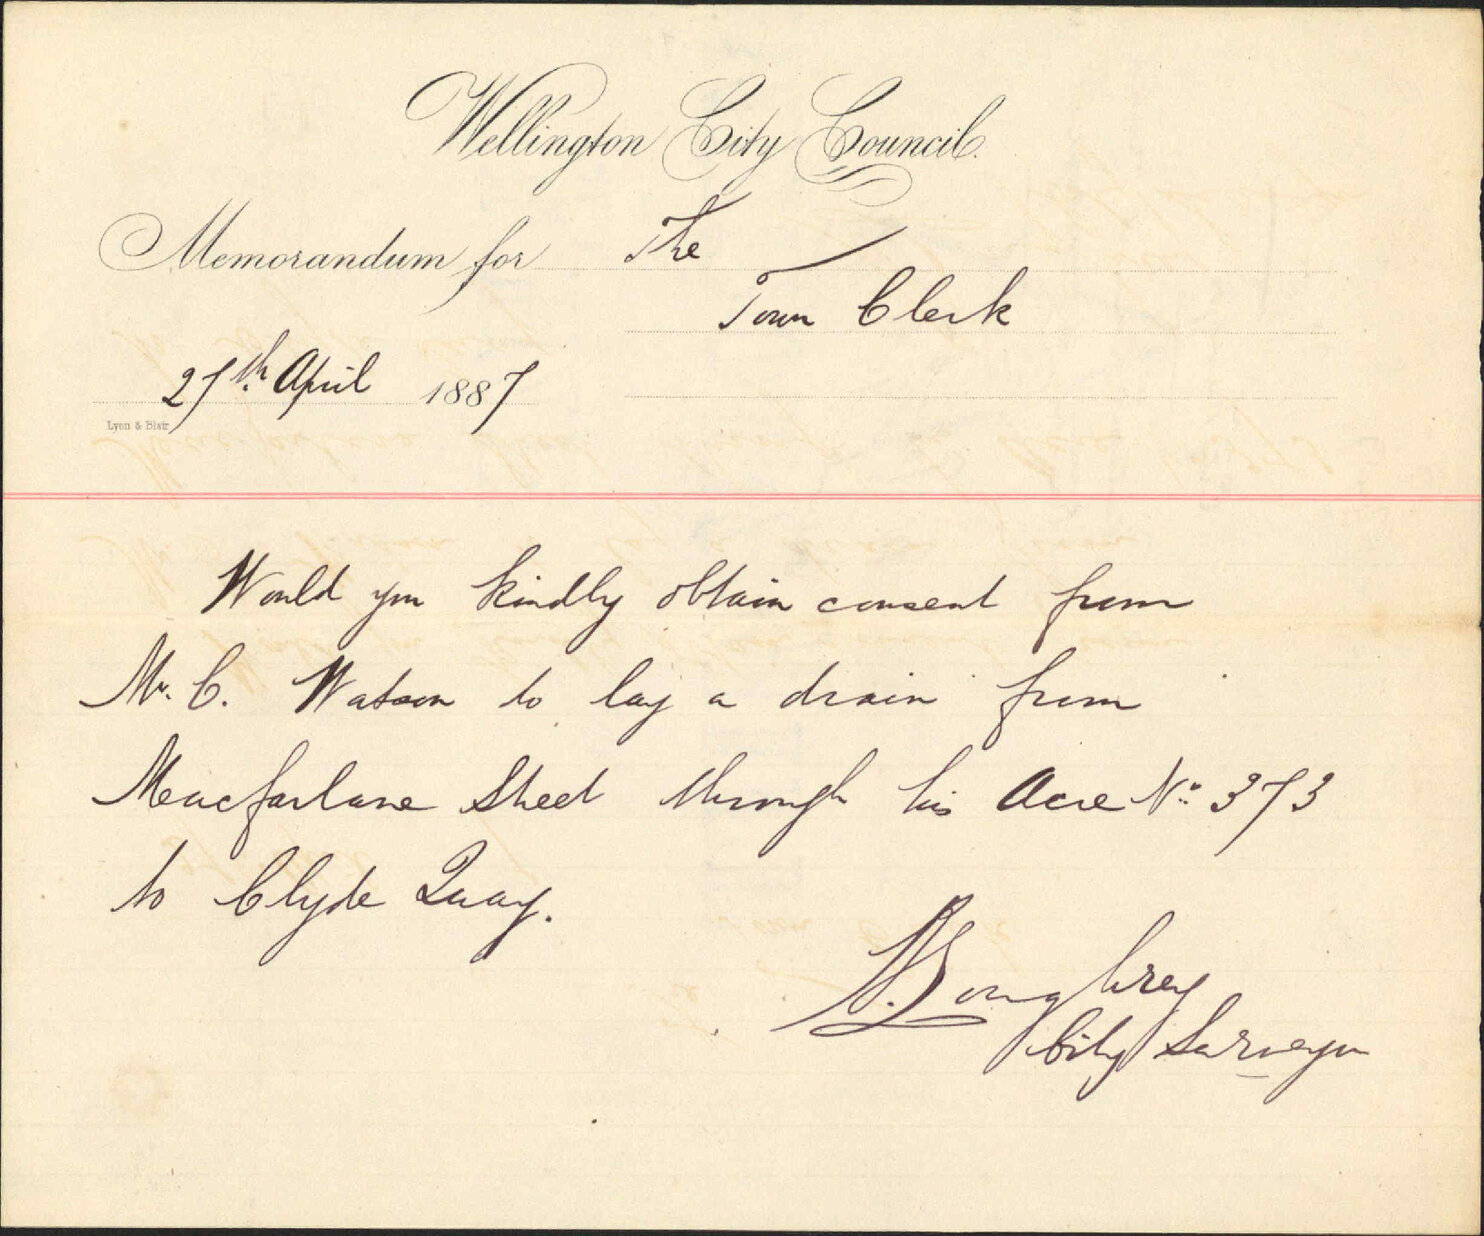 Wellington City Council.
Memorandum for The
Town Clerk
27th April 1887
Lyon & Blair
Would you kindly obtain consent from
Mr. C. Watson to lay a drain from
Macfarlane Street through his Acre No. 373
to Clyde Quay.
City Surveyor